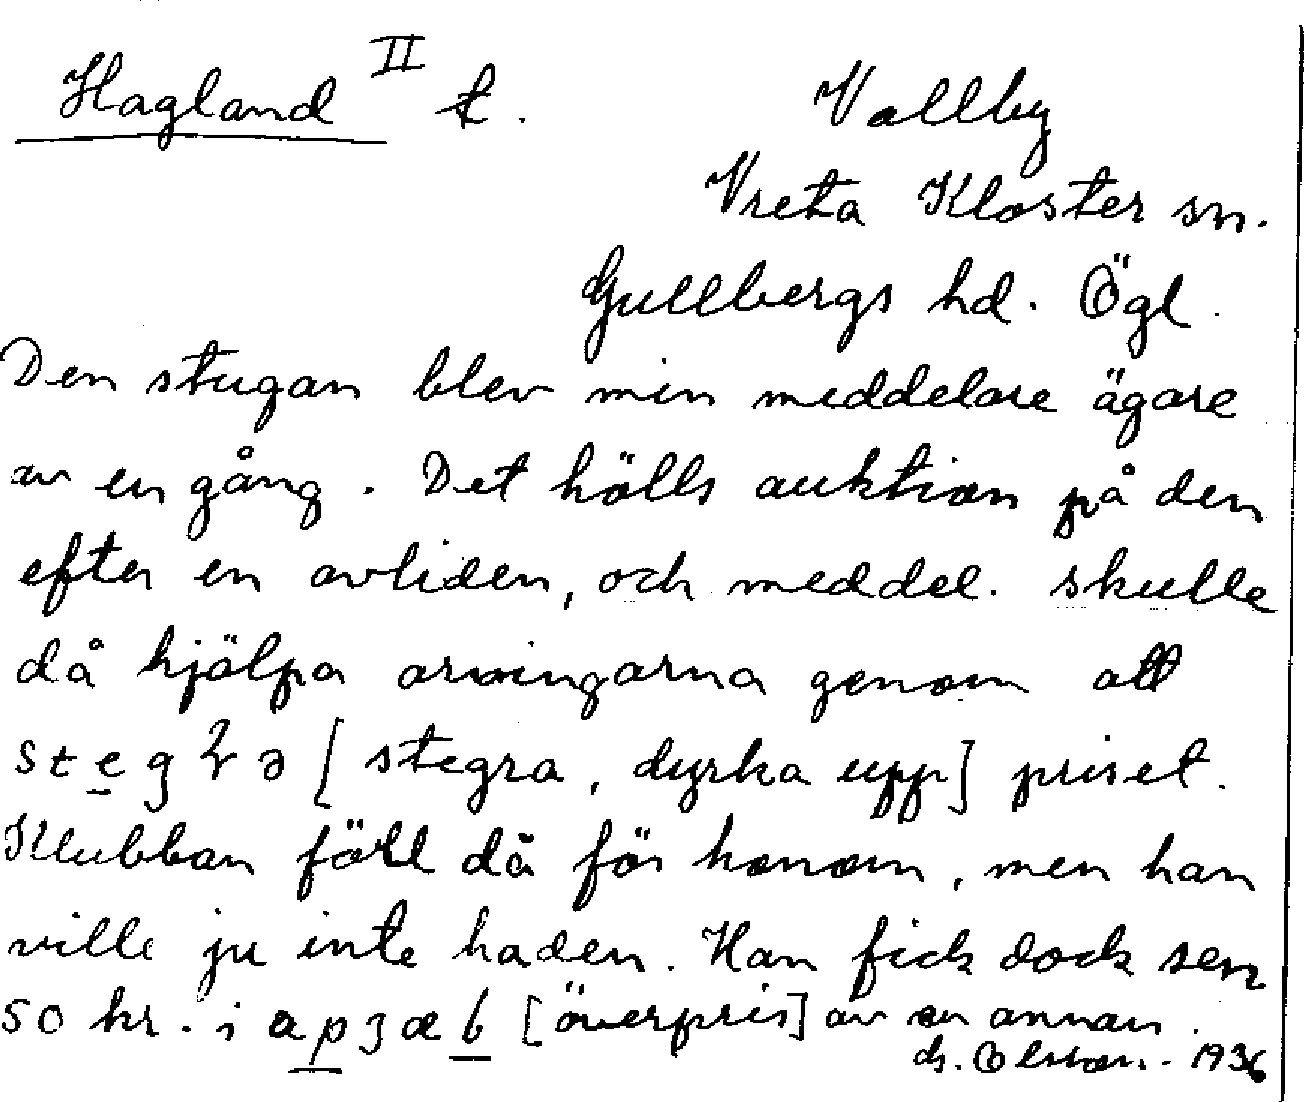 Hagland II t.
Vallby
Vreta Kloster sn.
Gullbergs hd. Ögl.
Den stugan blev min meddelare ägare
av en gång. Det hölls auktion på den
efter en avliden, och meddel. skulle
då hjälpa arvingarna genom att
[stegra, dyrka upp] priset.
Klubban föll då för honom, men han
ville ju inte haden. Han fick dock sen
50 kr. i [överpris] av en annan.
1936